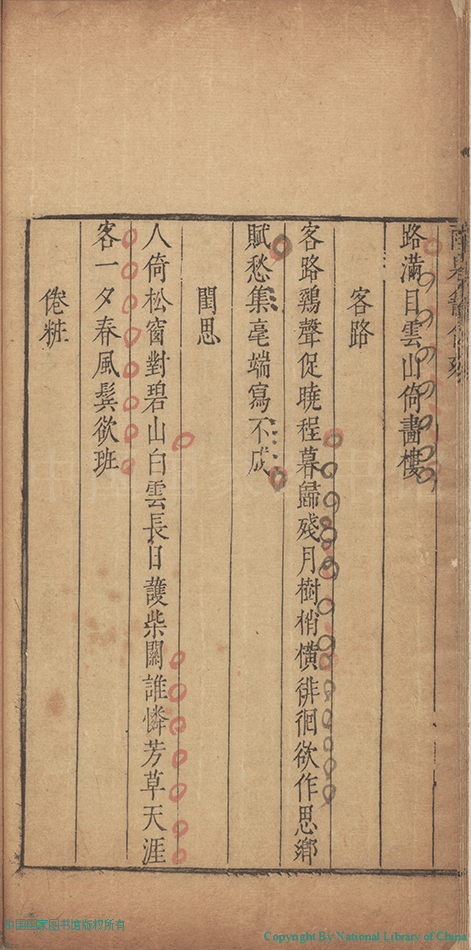 路滿目雲山倚畵樓
客路
客路鷄聲促曉程暮歸殘月樹梢橫徘徊欲作思鄉
賦愁集毫端寫不成
閨思
人倚松窗對碧山白雲長日護柴關誰憐芳草天涯
客一夕春風鬓欲班
倦粧
中国国家图书馆版权所有
Copyright By National Library of China